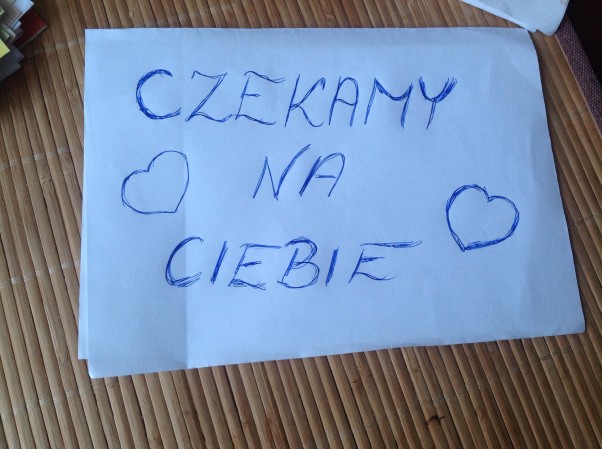 CZEKAMY
NA
CIEBIE